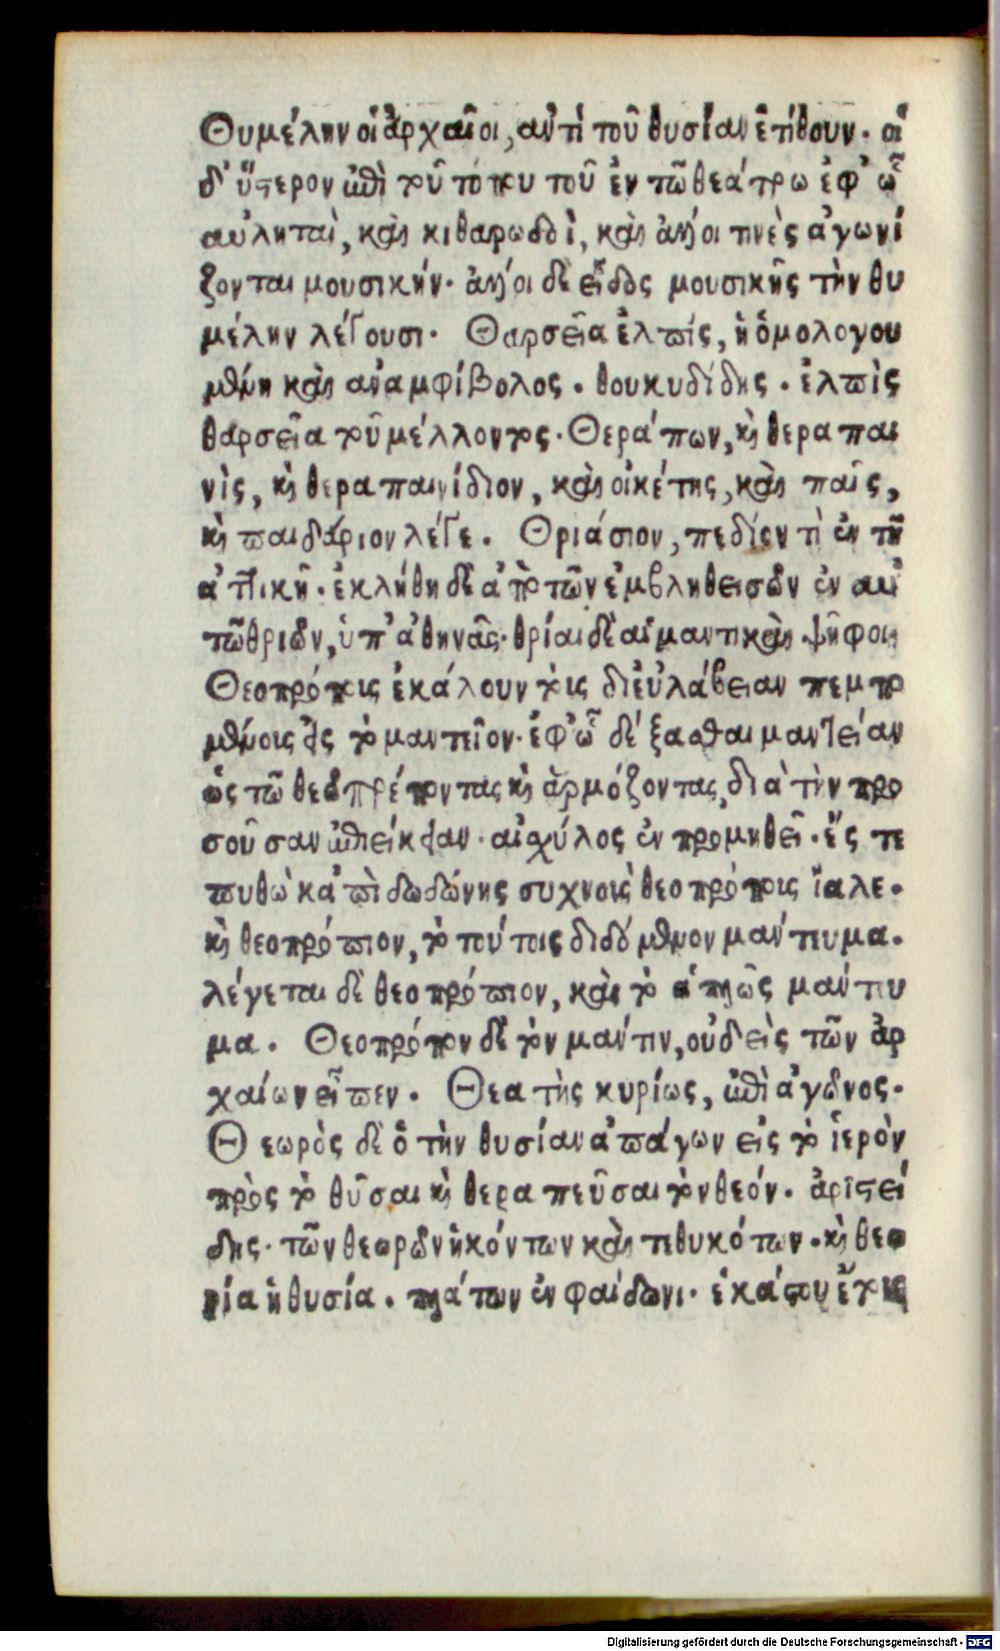 Θυμέλην οἱ ἀρχαῖοι, ἀντὶ τοῦ θυσίαν ἐτίθουν. οἱ
δ' ὕστερον ἐπὶ τοῦ τόπου τοῦ ἐν τῶ θεάτρω ἐφ' ὧ
αὐληταὶ, καὶ κιθαρωδοὶ, καὶ ἄλλοι τινὲς ἀγωνί
ζονται μουσικήν. ἄλλοι δὲ εἶδος μουσικῆς τὴν θυ
μέλην λέγουσι. Θαρσεῖα ἐλπίς, ἡ ὁμολογου
μένη καὶ ἀναμφίβολος. θουκυδίδης. ἐλπὶς
θαρσεῖα τοῦ μέλλοντος. Θεράπων, καὶ θεραπαι
νὶς, καὶ θεραπαινίδιον, καὶ οἰκέτης, καὶ παῖς,
καὶ παιδάριον λέγε. Θριάσιον, πεδίον τὶ ἐν τῆ
ἀττικῆ. ἐκλήθη δὲ ἀπὸ τῶν ἐμβληθεισῶν ἐν αυ
τῶ θριῶν, ὑπ' ἀθηνᾶς. θρίαι δὲ αἱ μαντικαὶ ψῆφοι
Θεοπρόποις ἐκάλουν τοις δι εὐλάβειαν πεμπο
μένοις εἰς τὸ μαντεῖον. ἐφ' ὧ δέξασθαι μαντείαν
ὡς τῶ θεῶ πρέποντας καὶ ἁρμόζοντας, διὰ τὴν προ
σοῦσαν ἐπιείκειαν. αἰσχύλος ἐν προμηθεῖ. ἔς τε
πυθὼ κἀπὶ δωδώνης συχνοὺς θεοπρόποις ἴαλε.
καὶ θεοπρόπιον, τὸ τούτοις διδόμενον μάντευμα.
λέγεται δὲ θεοπρόπιον, καὶ τὸ ἁπλῶς μάντευ
μα. Θεοπρόπον δὲ τὸν μάντιν, οὐδεὶς τῶν ἀρ
χαίων εἶπεν. Θεατὴς κυρίως, ἐπὶ ἀγῶνος.
Θεωρὸς δὲ ὁ τὴν θυσίαν ἀπάγων εἰς τὸ ἱερὸν
πρὸς τὸ θῦσαι καὶ θεραπεῦσαι τὸν θεόν. ἀριστεί
δης. τῶν θεωρῶν ἡκόντων καὶ τεθυκότων. καὶ θεω
ρία ἡ θυσία. πλάτων ἐν φαίδωνι. ἑκάστου ἔτους
Digitalisierung gefördert durch die Deutsche Forschungsgemeinschaft - DFG